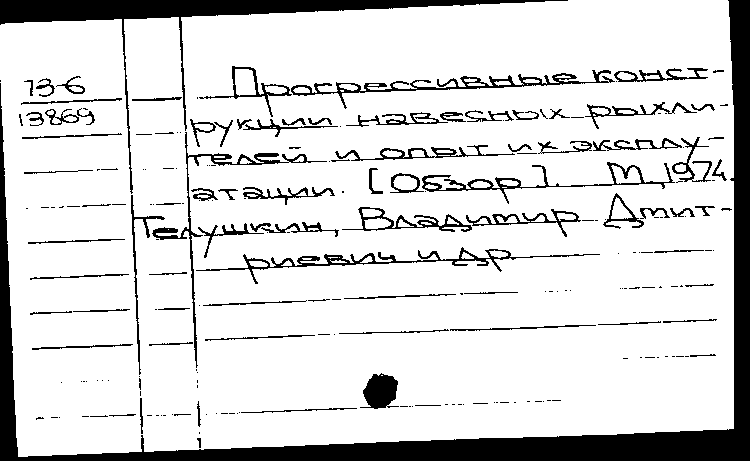 73-6
13869
Прогрессивные конст-
рукции навесных рыхли-
телей и опыт их эксплу-
атации. [Обзор]. М, 1974.
Телушкин, Владимир Дмит-
риевич и др